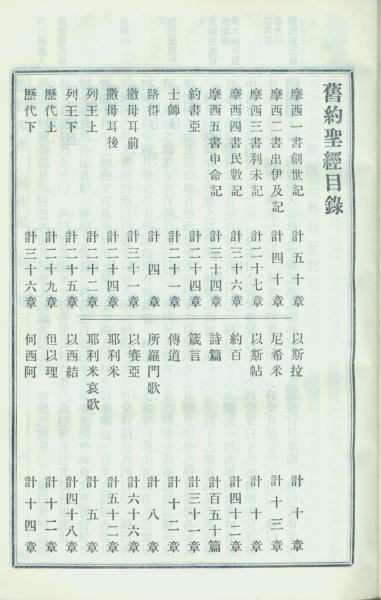 舊約聖經目錄
摩西一書創世記 計五十章
摩西二書出伊及記 計四十章
摩西三書利未記 計二十七章
摩西四書民數記 計三十六章
摩西五書申命記 計三十四章
約書亞 計二十四章
士師 計二十一章
路得 計四章
撒母耳前 計三十一章
撒母耳後 計二十四章
列王上 計二十二章
列王下 計二十五章
歷代上 計二十九章
歷代下 計三十六章
以斯拉 計十章
尼希米 計十三章
以斯帖 計十章
約百 計四十二章
詩篇 計百五十篇
箴言 計三十一章
傳道 計十二章
所羅門歌 計八章
以賽亞 計六十六章
耶利米 計五十二章
耶利米哀歌 計五章
以西結 計四十八章
但以理 計十二章
何西阿 計十四章